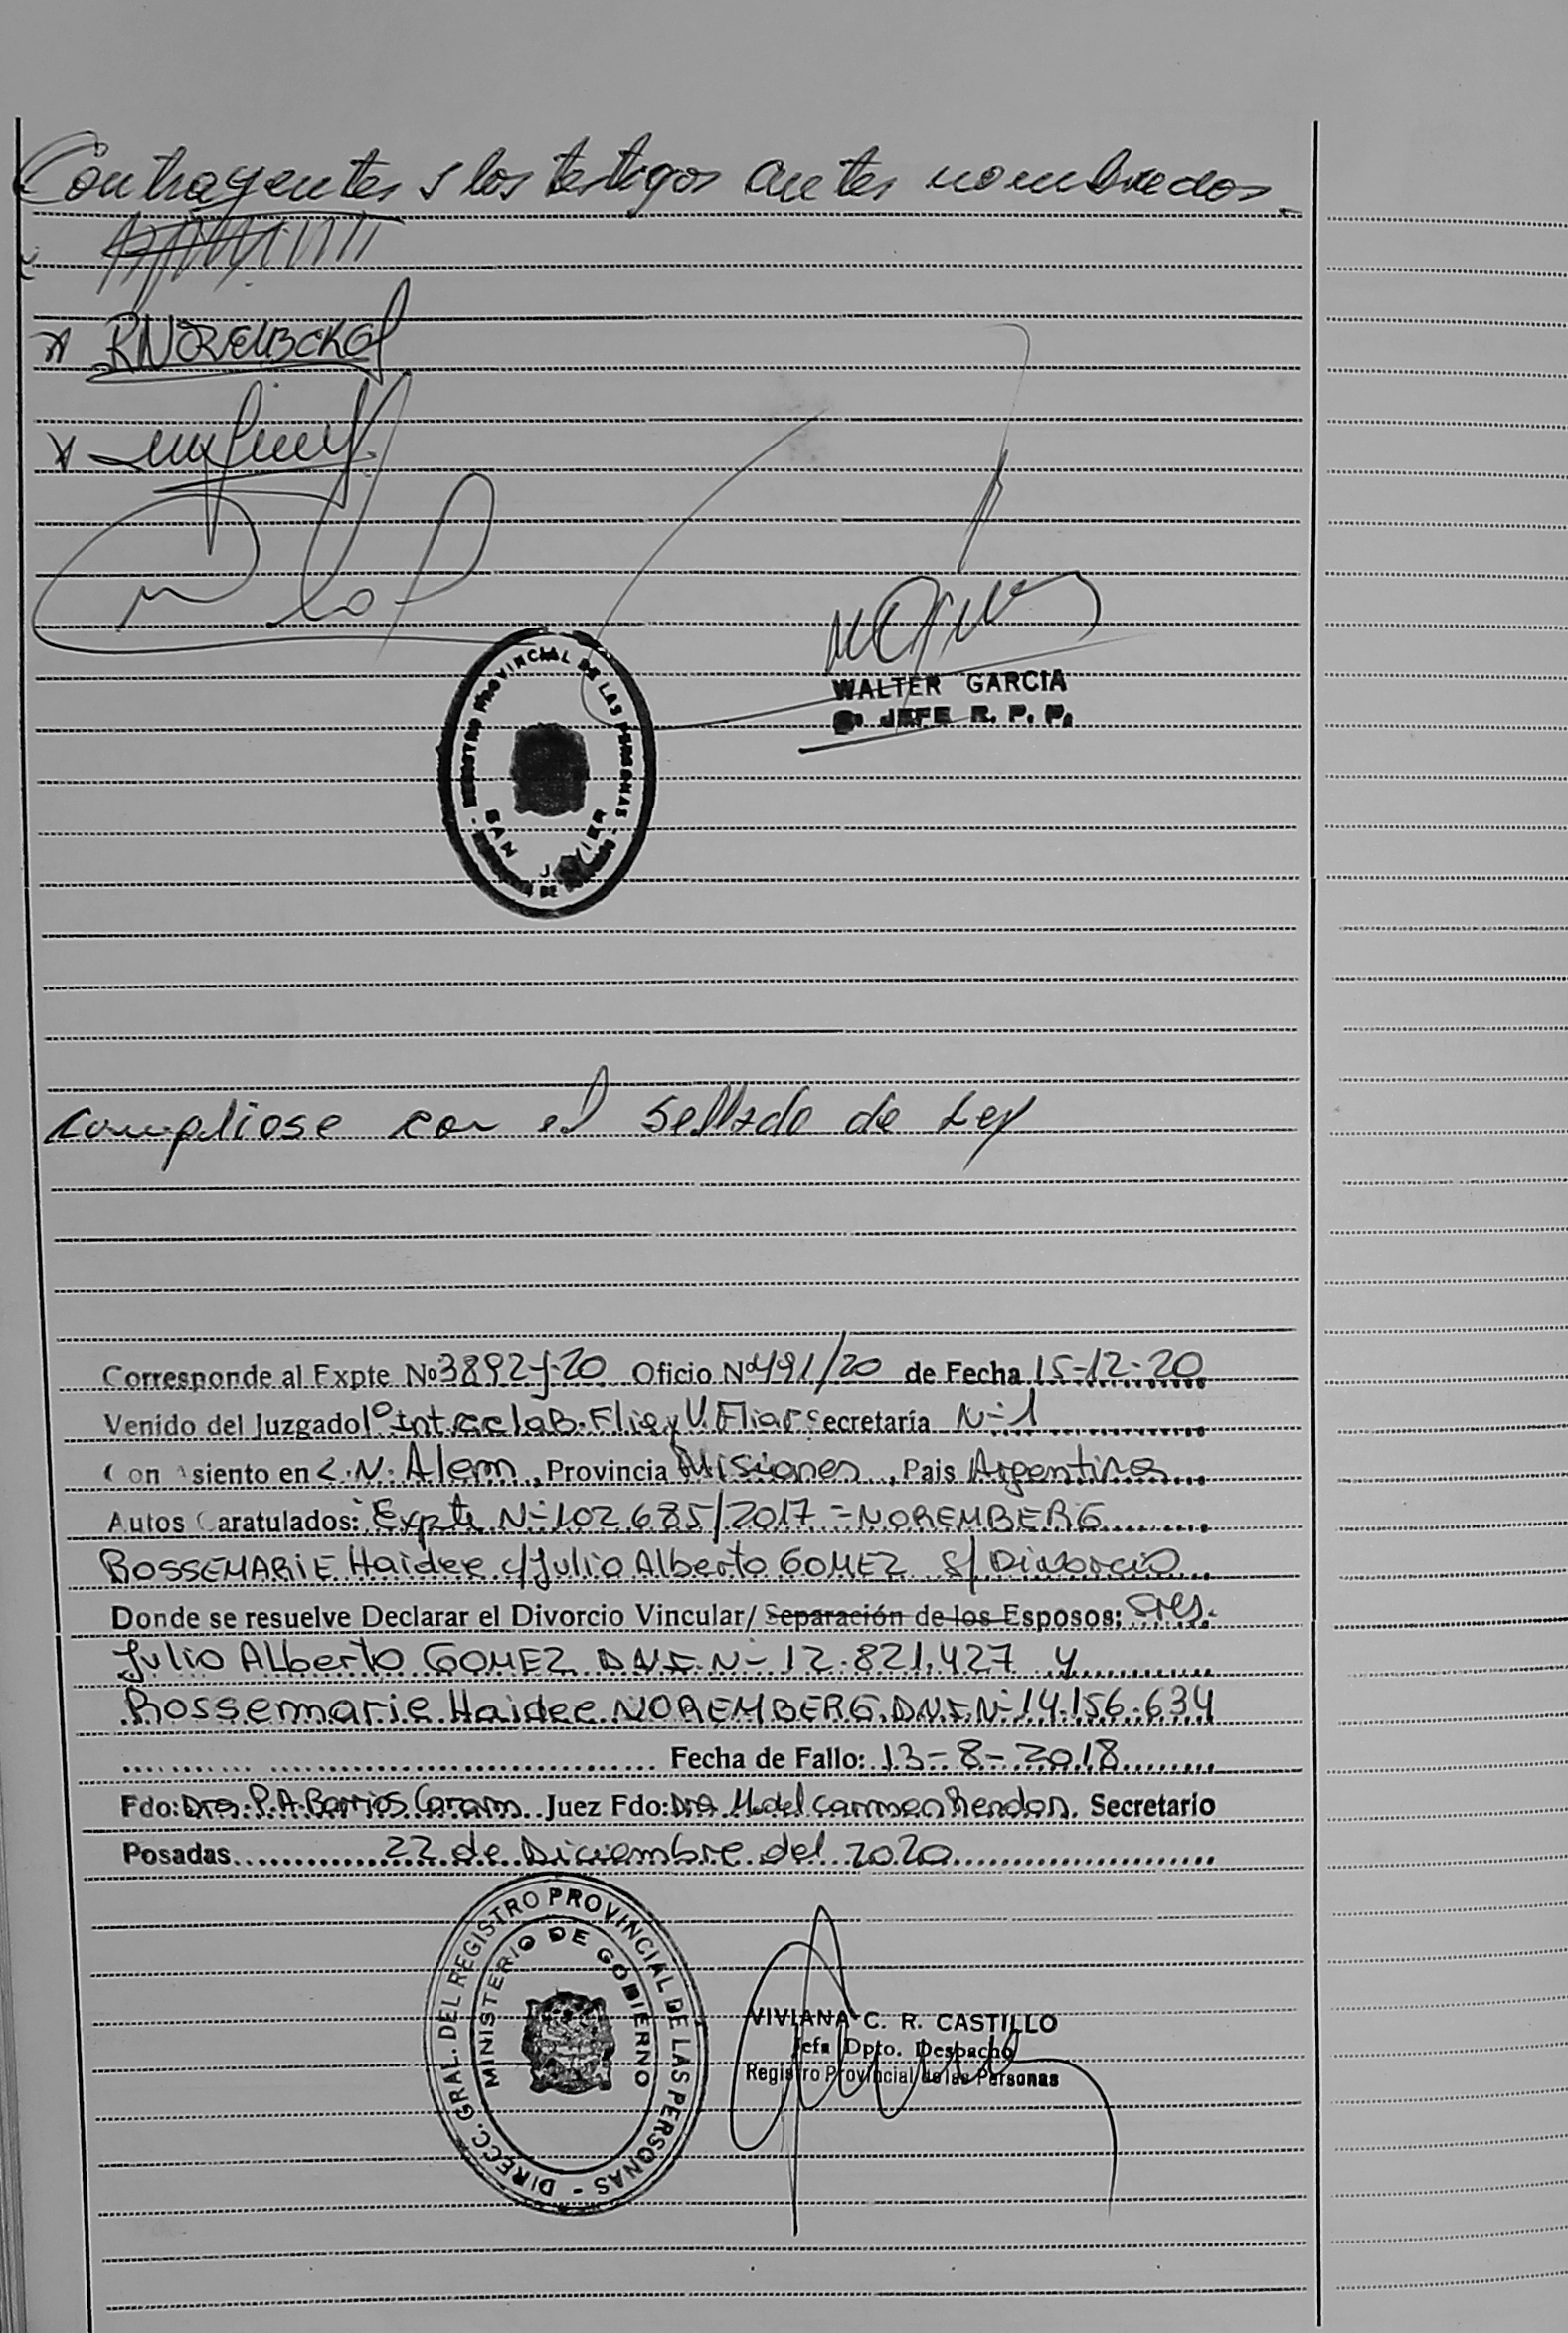 Contrayentes y los testigos antes nombrados.
RNOREMBERG
REGISTRO PROVINCIAL DE LAS PERSONAS
SAN JAVIER
WALTER GARCIA
JEFE R. P. P.
Cumpliose con el Sellado de Ley
Corresponde al Expte Nº 3892-J-20 Oficio Nº 491/20 de Fecha 15-12-20
Venido del Juzgado 1º Inst. CC LaB. Flia y V. Fliar Secretaría Nº 1
Con Asiento en L.N. Alem, Provincia Misiones, Pais Argentina
Autos Caratulados: Expte Nº 102.685/2017 = NOREMBERG
ROSSEMARIE Haidee c/Julio Alberto GOMEZ s/ Divorcio
Donde se resuelve Declarar el Divorcio Vincular/ Separación de los Esposos: Sres.
Julio ALberto GOMEZ D.N.I. Nº 12.821.427 y
Rossemarie Haidee NOREMBERG. D.N.I. Nº 14.156.634
Fecha de Fallo: 13-8-2018
Fdo: Dra. P.A. Barrios Caram. Juez Fdo: Dra. M. del Carmen Rendon. Secretario
Posadas 22 de Diciembre del 2020
DIRECC. GRAL. DEL REGISTRO PROVINCIAL DE LAS PERSONAS -
MINISTERIO DE GOBIERNO
VIVIANA C. R. CASTILLO
Jefa Dpto. Despacho
Registro Provincial de las Personas